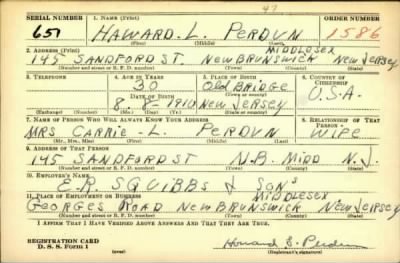 47
SERIAL NUMBER 1. NAME (Print) ORDER NUMBER
651 HAWARD. L. PERDUN 1586
(First) (Middle) (Last)
2. ADDRESS (Print) MIDDLESEX
145 SANDFORD ST. NEW BRUNSWICK NEW JERSEY
(Number and street or R. F. D. number) (Town) (County) (State)
3. TELEPHONE 4. AGE IN YEARS 5. PLACE OF BIRTH 6. COUNTRY OF CITIZENSHIP
30 OLD BRIDGE
(Town or county)
DATE OF BIRTH U.S.A.
8. 8. 1910 NEW JERSEY
(Exchange) (Number) (Mo.) (Day) (Yr.) (State or country)
7. NAME OF PERSON WHO WILL ALWAYS KNOW YOUR ADDRESS 8. RELATIONSHIP OF THAT PERSON
MRS CARRIE. L. PERDUN WIFE
(Mr., Mrs., Miss) (First) (Middle) (Last)
9. ADDRESS OF THAT PERSON
145 SANDFORD ST N.B. MIDD N.J.
(Number and street or R. F. D. number) (Town) (County) (State)
10. EMPLOYER'S NAME
E.R. SQUIBBS & SONS
11. PLACE OF EMPLOYMENT OR BUSINESS MIDDLESEX
GEORGES ROAD NEW BRUNSWICK NEW JERSEY
(Number and street or R. F. D. number) (Town) (County) (State)
I AFFIRM THAT I HAVE VERIFIED ABOVE ANSWERS AND THAT THEY ARE TRUE.
REGISTRATION CARD
D. S. S. Form 1 Howard L. Perdun
(Registrant's signature)